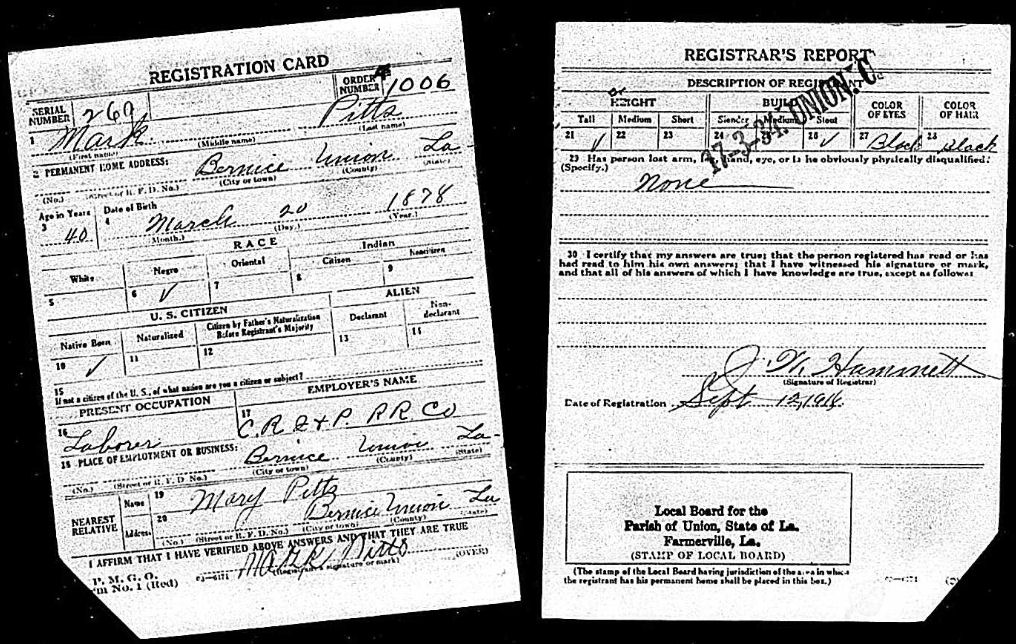 REGISTRATION CARD
SERIAL NUMBER 269
ORDER NUMBER A 1006
1 Mark Pitts
(First name) (Middle name) (Last name)
2 PERMANENT HOME ADDRESS:
Bernice Union La-
(No.) (Street or R. F. D. No.) (City or town) (County) (State)
Age in Years Date of Birth
3 40 4 March 20 1878
(Month.) (Day.) (Year.)
RACE
White Negro Oriental Indian
Citizen Noncitizen
5 6 ✓ 7 8 9
U. S. CITIZEN ALIEN
Native Born Naturalized Citizen by Father's Naturalization Before Registrant's Majority Declarant Non-declarant
10 ✓ 11 12 13 14
15 If not a citizen of the U. S., of what nation are you a citizen or subject?
PRESENT OCCUPATION EMPLOYER'S NAME
16 Laborer 17 C. R. I & P. RR. Co
18 PLACE OF EMPLOYMENT OR BUSINESS:
Bernice Union La-
(No.) (Street or R. F. D. No.) (City or town) (County) (State)
NEAREST RELATIVE
Name 19 Mary Pitts
Address 20 Bernice Union La
(No.) (Street or R. F. D. No.) (City or town) (County) (State)
I AFFIRM THAT I HAVE VERIFIED ABOVE ANSWERS AND THAT THEY ARE TRUE
P. M. G. O.
No. 1 (Red) 03—6171 (Registrant's signature or mark) (OVER)
REGISTRAR'S REPORT
17-3-34. UNION. C.
DESCRIPTION OF REGISTRANT
HEIGHT BUILD COLOR OF EYES COLOR OF HAIR
Tall Medium Short Slender Medium Stout
21 ✓ 22 23 24 26 ✓ 27 Black 28 Black
29 Has person lost arm, hand, eye, or is he obviously physically disqualified?
(Specify.) None
30 I certify that my answers are true; that the person registered has read or has
had read to him his own answers; that I have witnessed his signature or mark,
and that all of his answers of which I have knowledge are true, except as follows:
J. W. Hammett
(Signature of Registrar)
Date of Registration Sept 12, 1918
Local Board for the
Parish of Union, State of La.
Farmerville, La.
(STAMP OF LOCAL BOARD)
(The stamp of the Local Board having jurisdiction of the area in which
the registrant has his permanent home shall be placed in this box.)